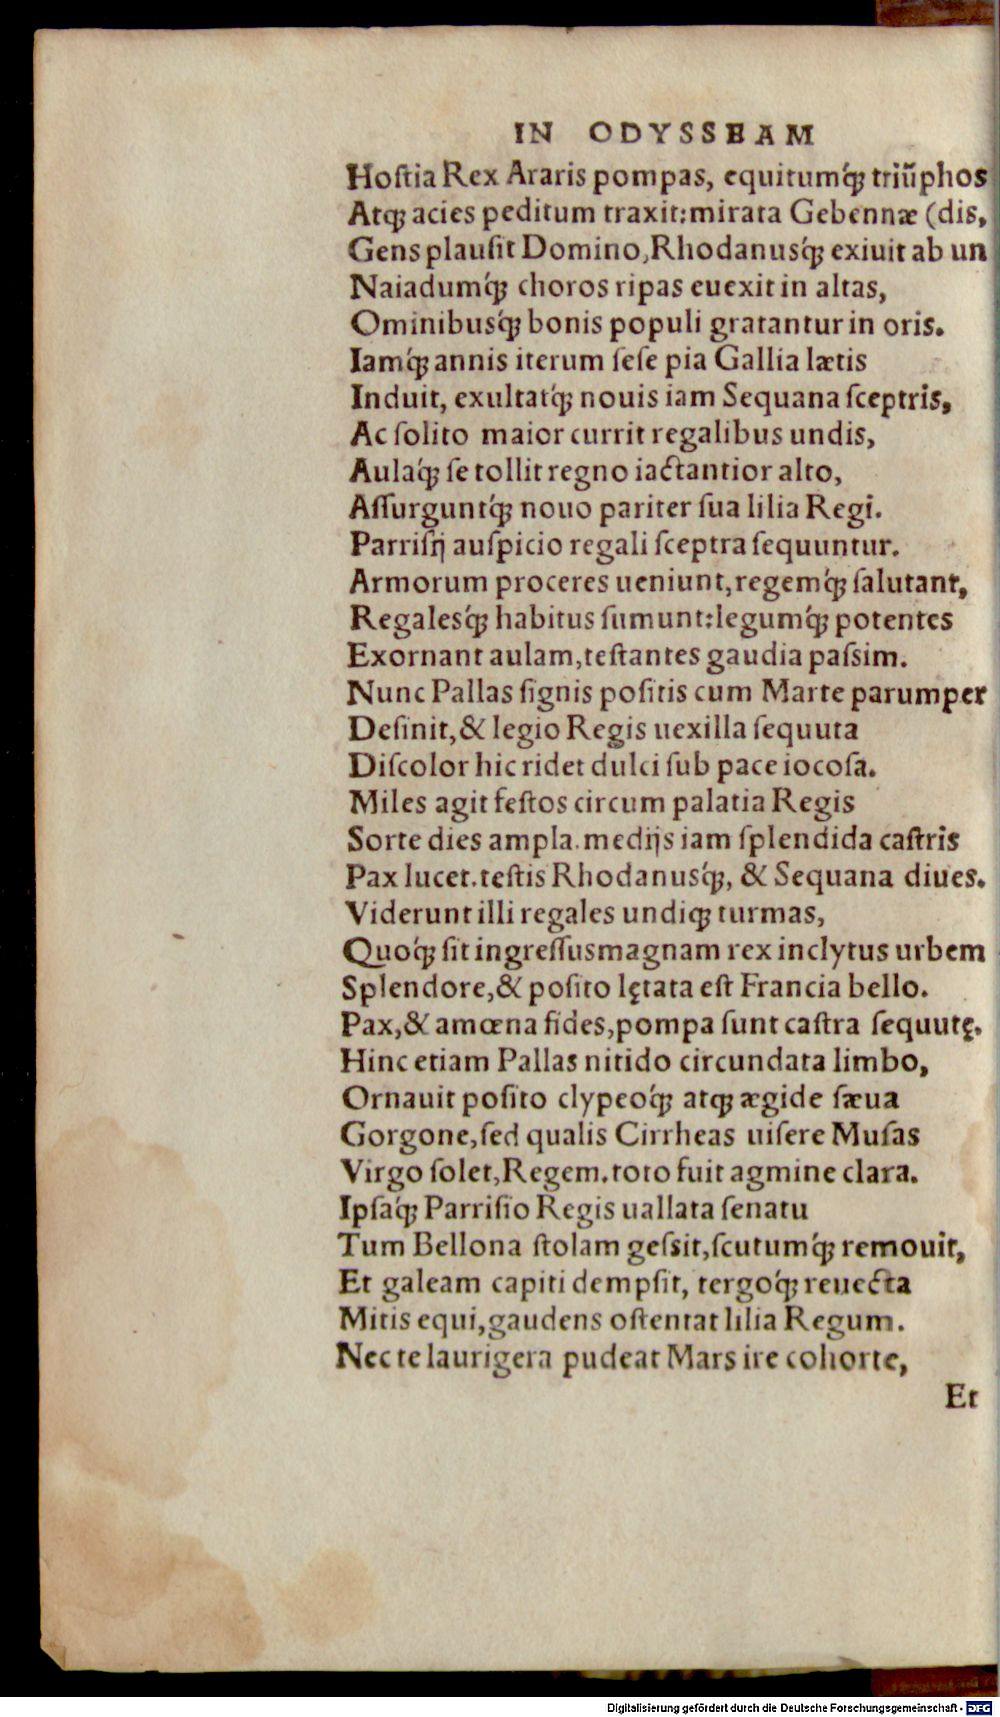 IN ODYSSEAM
Hoſtia Rex Araris pompas, equitumq́ꝫ triũphos
Atqꝫ acies peditum traxit:mirata Gebennæ (dis,
Gens plauſit Domino,Rhodanusq́ꝫ exiuit ab un
Naiadumq́ꝫ choros ripas euexit in altas,
Ominibusq́ꝫ bonis populi gratantur in oris.
Iamq́ꝫ annis iterum ſeſe pia Gallia lætis
Induit, exultatq́ꝫ nouis iam Sequana ſceptris,
Ac ſolito maior currit regalibus undis,
Aulaq́ꝫ ſe tollit regno iactantior alto,
Aſſurguntq́ꝫ nouo pariter ſua lilia Regi.
Parriſij auſpicio regali ſceptra ſequuntur.
Armorum proceres ueniunt,regemq́ꝫ ſalutant,
Regalesq́ꝫ habitus ſumunt:legumq́ꝫ potentes
Exornant aulam,teſtantes gaudia paſsim.
Nunc Pallas ſignis poſitis cum Marte parumper
Deſinit,& legio Regis uexilla ſequuta
Diſcolor hic ridet dulci ſub pace iocoſa.
Miles agit feſtos circum palatia Regis
Sorte dies ampla.medijs iam ſplendida caſtris
Pax lucet.teſtis Rhodanusq́ꝫ, & Sequana diues.
Viderunt illi regales undiqꝫ turmas,
Quoq́ꝫ ſit ingreſſus magnam rex inclytus urbem
Splendore,& poſito lętata eſt Francia bello.
Pax,& amœna fides,pompa ſunt caſtra ſequutę.
Hinc etiam Pallas nitido circundata limbo,
Ornauit poſito clypeoq́ꝫ atqꝫ ægide ſæua
Gorgone,ſed qualis Cirrheas uiſere Muſas
Virgo ſolet,Regem.toto fuit agmine clara.
Ipſaq́ꝫ Parriſio Regis uallata ſenatu
Tum Bellona ſtolam geſsit,ſcutumq́ꝫ remouit,
Et galeam capiti dempſit, tergoq́ꝫ reuecta
Mitis equi,gaudens oſtentat lilia Regum.
Nec te laurigera pudeat Mars ire cohorte,
Et
Digitalisierung gefördert durch die Deutsche Forschungsgemeinschaft - DFG